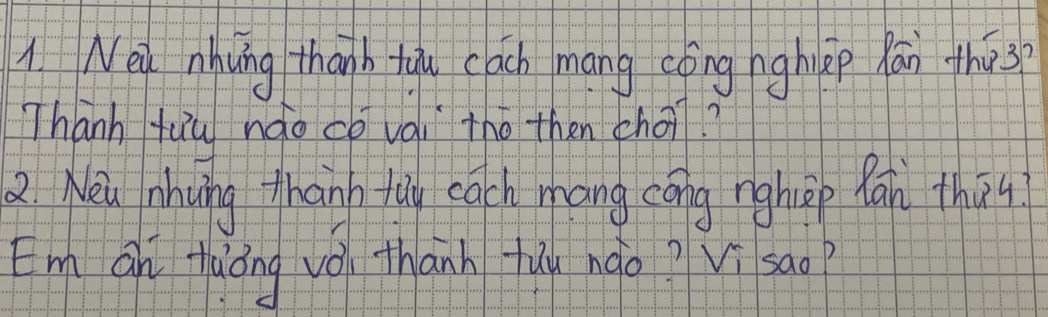 1. Nêu những thành tựu cách mạng công nghiệp lần thứ 3?
Thành tựu nào có vai trò then chốt?
2. Nêu những thành tựu cách mạng công nghiệp lần thứ 4?
Em ấn tượng với thành tựu nào? Vì sao?